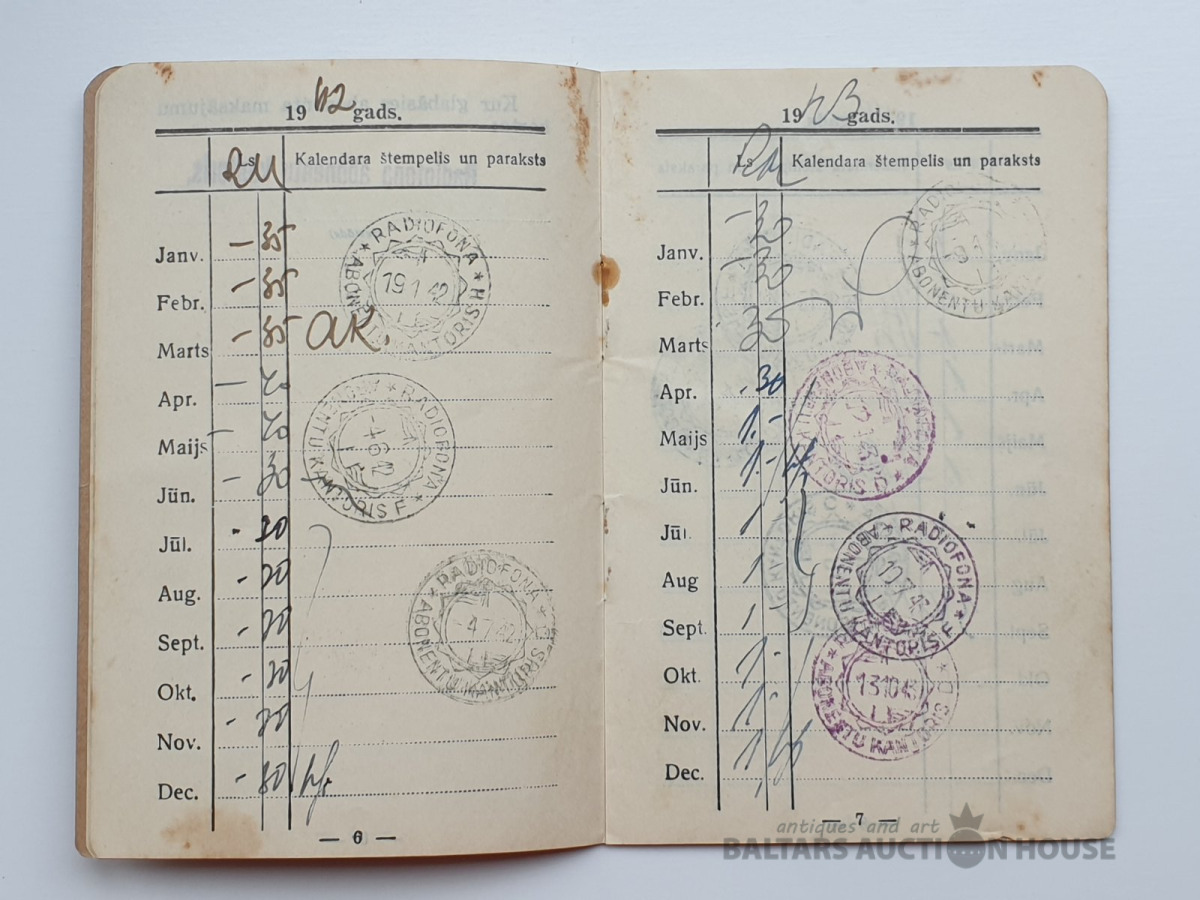 1942 gads.
RM Kalendara štempelis un paraksts
Janv. — 35
Febr. — 35
Marts — 35 AK.
Apr. —
Maijs —
Jūn. — 30
Jūl. - 20
Aug. - 20
Sept. - 20
Okt. - 20
Nov. - 20
Dec. -
RADIOFONA * H
ABONENTU KANTORIS
19 1 42
RADIOFONA * ABONENTU KANTORIS F *
-4 6 42
RADIOFONA * ABONENTU KANTORIS
-4 7 42
— 6 —
1943 gads.
Ls Kalendara štempelis un paraksts
Janv. - 30
Febr. - 30
Marts 35
Apr. - 30
Maijs 1.-
Jūn. 1.-
Jūl. 1
Aug 1
Sept. 1
Okt. 1.-
Nov. 1.-
Dec. 1
RADIOFONA
ABONENTU KAN
KANTORIS D *
RADIOFONA * ABONENTU KANTORIS F *
10 7 43
* ABONENTU KANTORIS D *
13 10 43
— 7 —
antiques and art
BALTARS AUCTION HOUSE